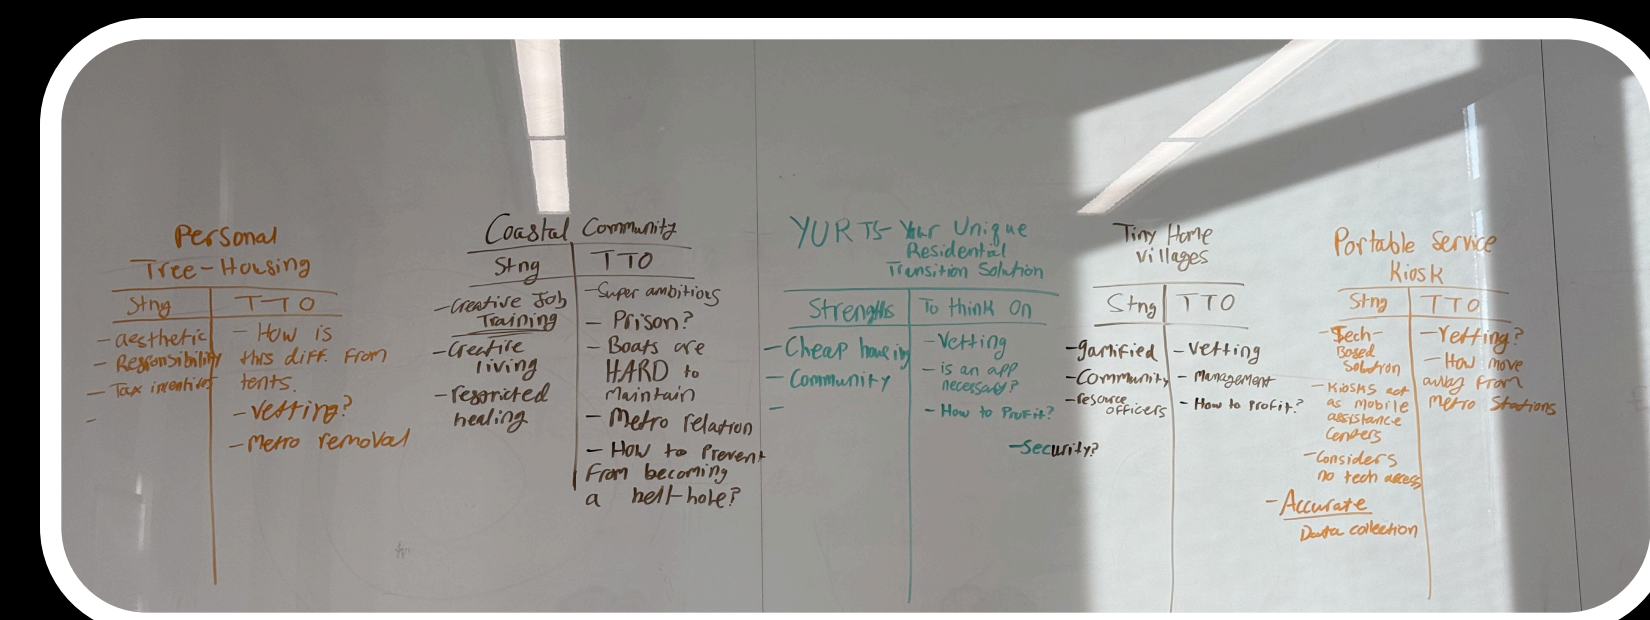 Personal
Tree-Housing
Stng
TTO
- aesthetic
- Responsibility
- Tax incentives
-
- How is
this diff. from
tents.
- Vetting?
- Metro removal
Coastal Community
Stng
TTO
- Creative Job
Training
- Creative
living
- restricted
healing
- Super ambitious
- Prison?
- Boats are
HARD to
Maintain
- Metro relation
- How to Prevent
from becoming
a hell-hole?
YURTS- Your Unique
Residential
Transition Solution
Strengths
To think On
- Cheap housing
- Community
-
- Vetting
- is an app
necessary?
- How to Profit?
- Security?
Tiny Home
Villages
Stng
TTO
- gamified
- Community
- resource
officers
- Vetting
- Management
- How to Profit?
Portable Service
Kiosk
Stng
TTO
- Tech-
Based
Solution
- Kiosks act
as mobile
assistance
Centers
- Considers
no tech access
- Accurate
Data collection
- Vetting?
- How move
away from
Metro Stations